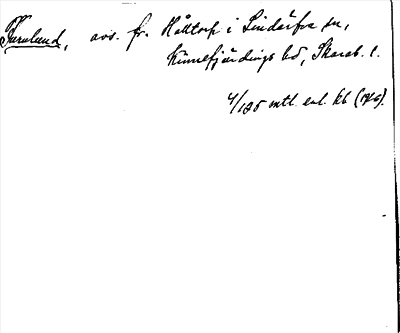 Furulund, avs. fr. Hålltorp i Lindärfva sn,
Kinnefjärdings hd, Skarab. l.
4/185 mtl. enl. kb (1940).